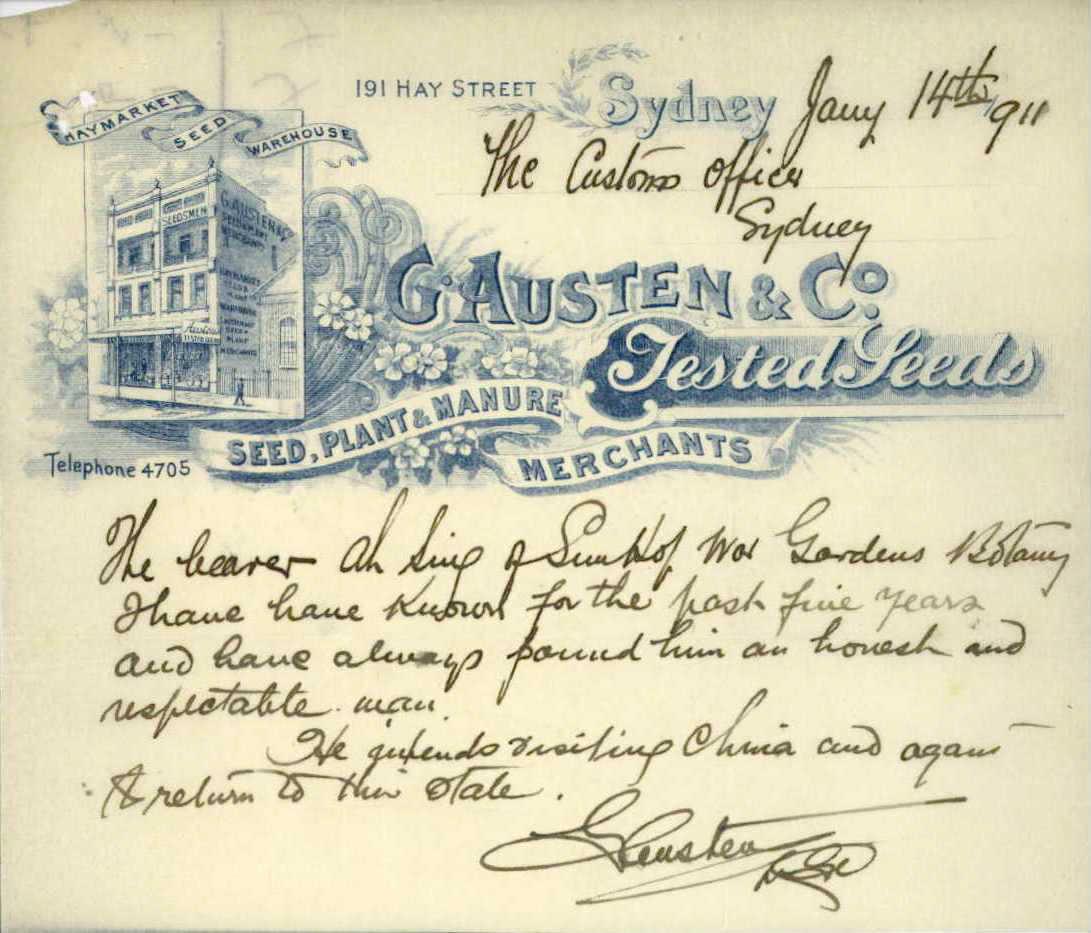 HAYMARKET SEED WAREHOUSE
191 HAY STREET Sydney Jany 14th 1911
The Customs Officer
Sydney
SEEDSMEN
G. AUSTEN & Co
G. AUSTEN & Co.
Tested Seeds
SEED, PLANT & MANURE
MERCHANTS
Telephone 4705
The bearer Ah Sing of Sun Hop War Gardens Botany
I have have known for the past five years
and have always found him an honest and
respectable man.
He intends visiting China and again
to return to this State.
G Austen & Co